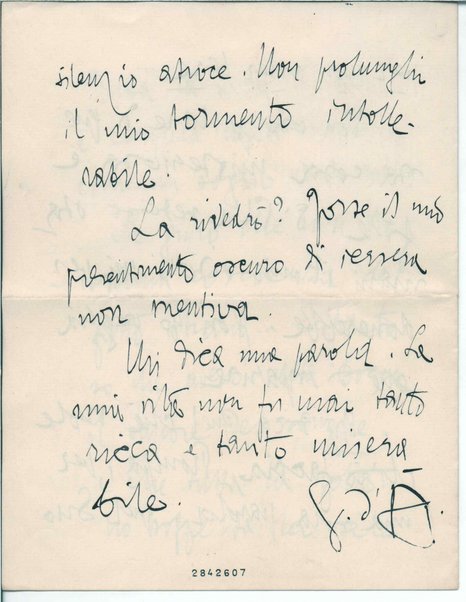 silenzio atroce. Non prolunghi
il mio tormento intolle-
rabile!
La rivedrò? Forse il mio
presentimento oscuro di iersera
non mentiva.
Mi dica una parola. La
mia vita non fu mai tanto
ricca e tanto misera
bile.
G. d'A.
2842607